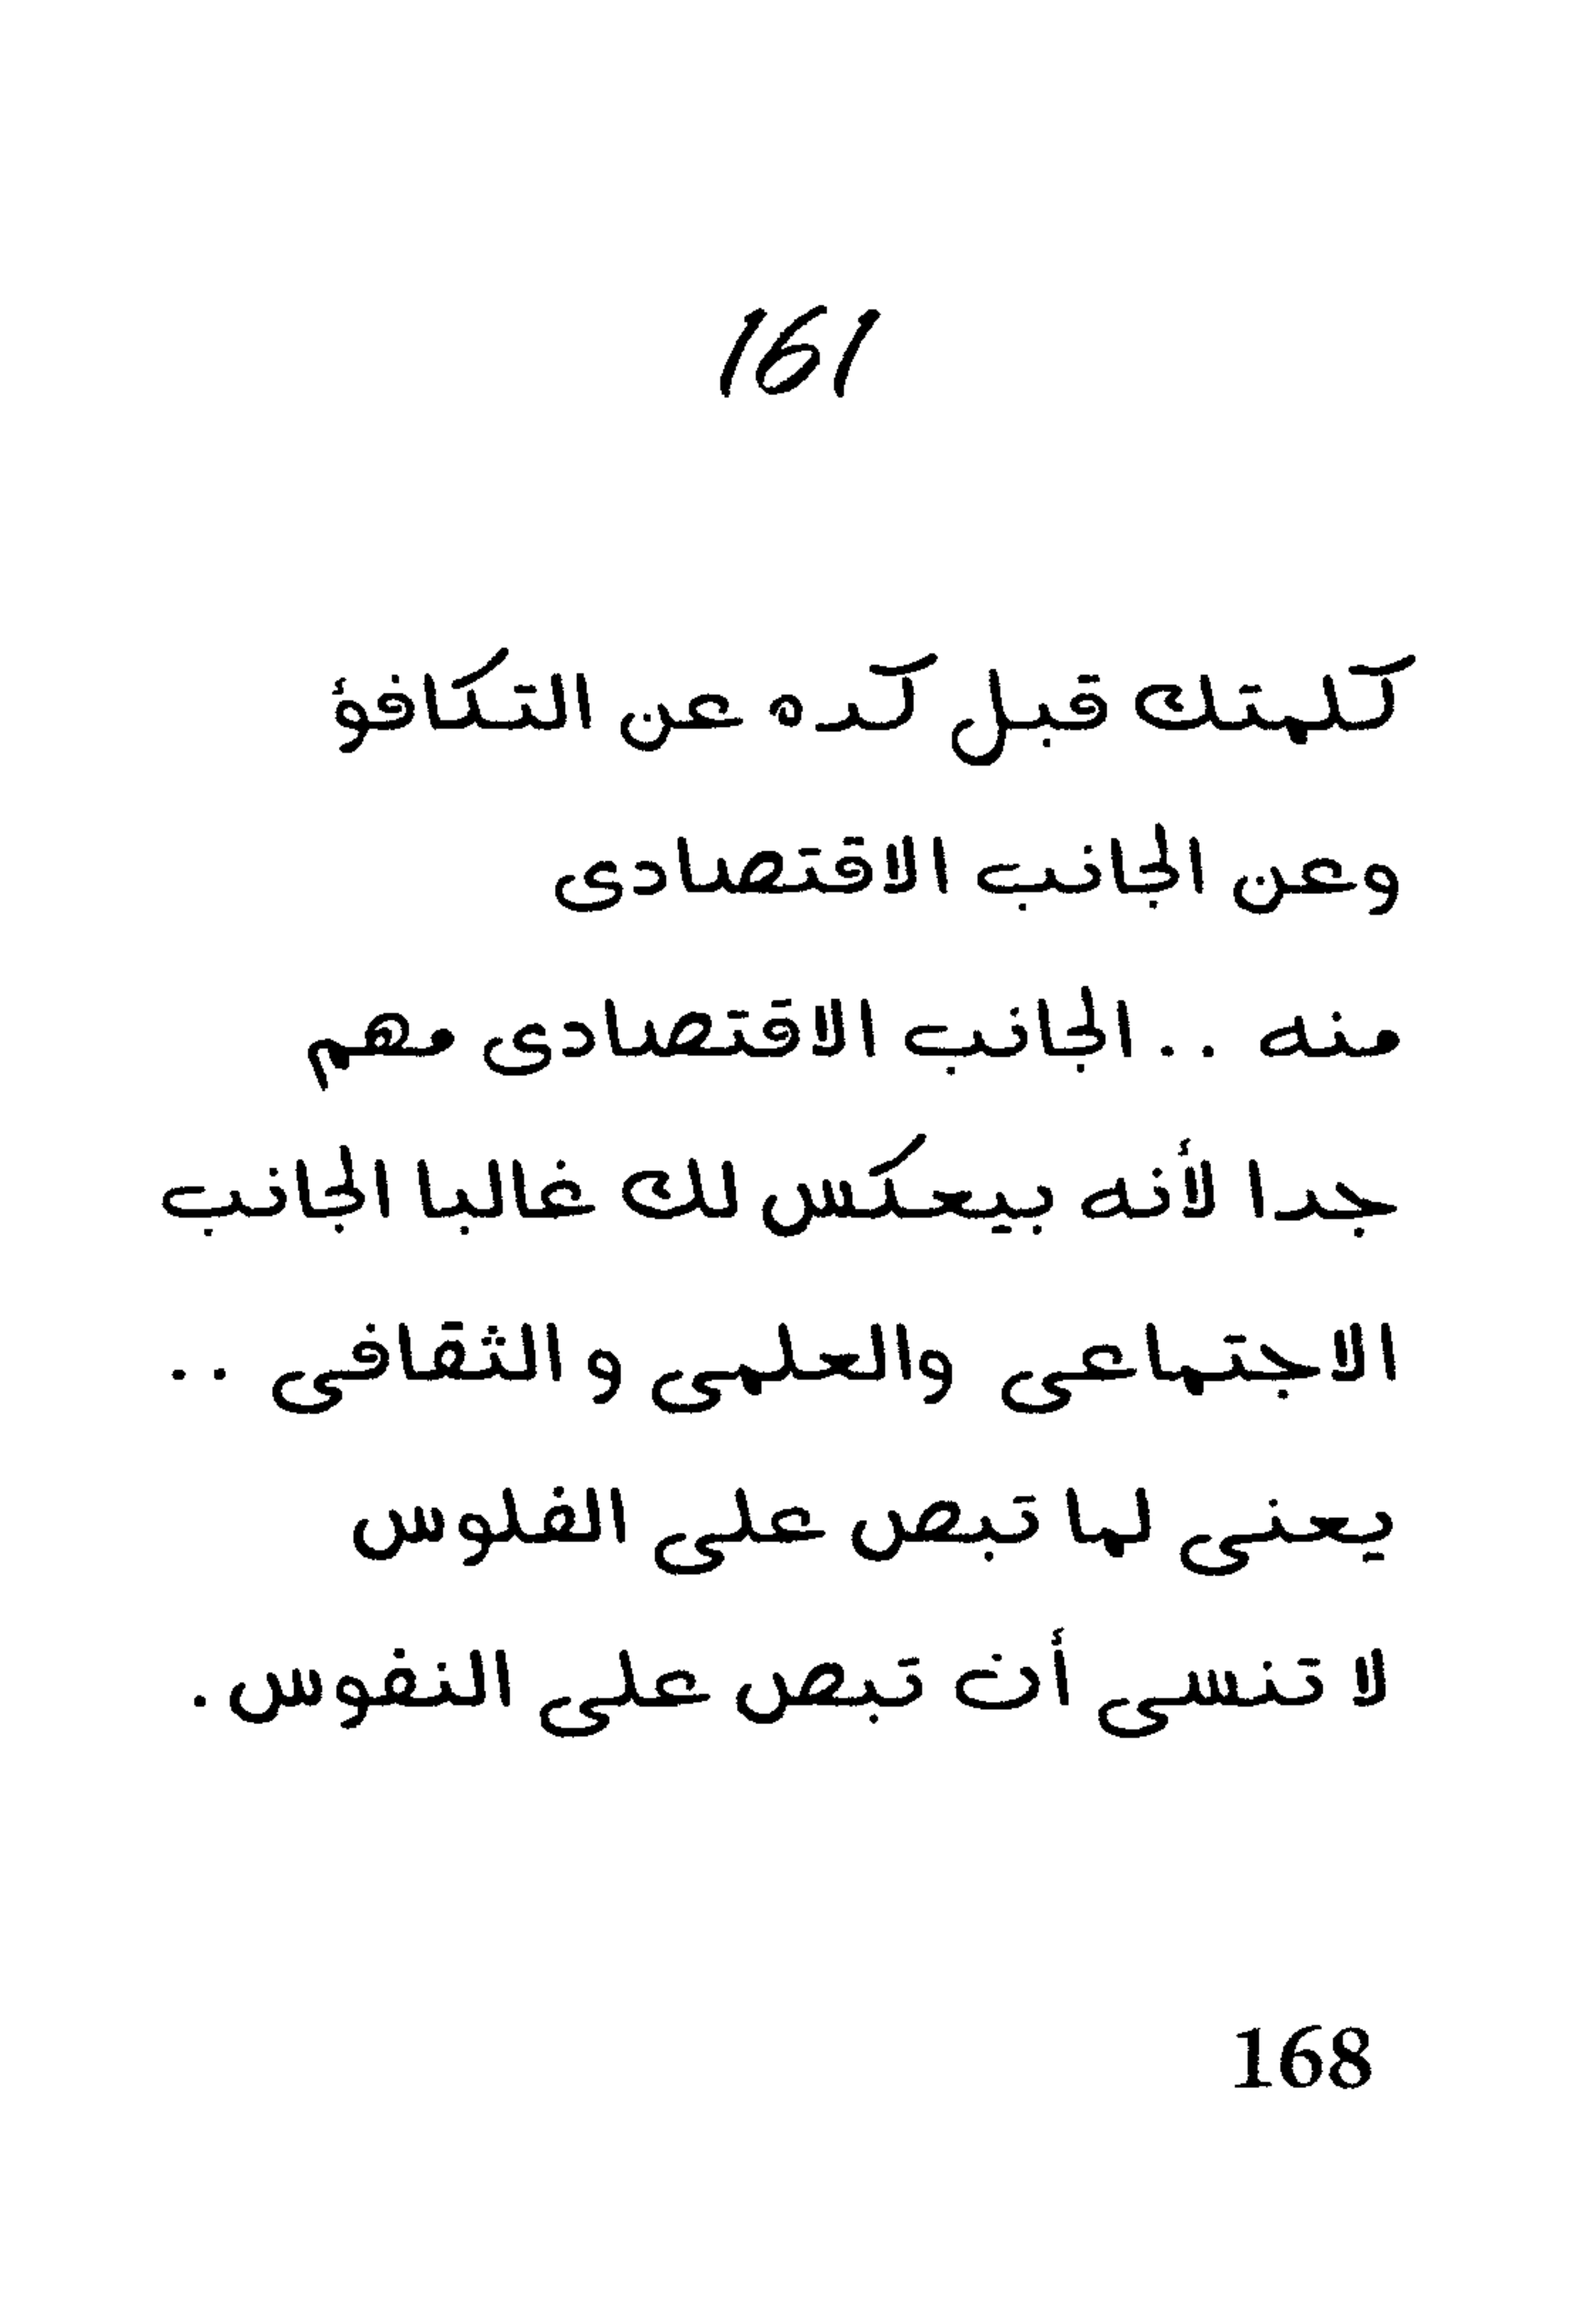 161
كلمتك قبل كده عن التكافؤ
وعن الجانب الاقتصادى
منه .. الجانب الاقتصادى مهم
جدا لأنه بيعكس لك غالبا الجانب
الاجتماعى والعلمى والثقافى ..
يعنى لما تبص على الفلوس
لا تنسى أن تبص على النفوس .
168